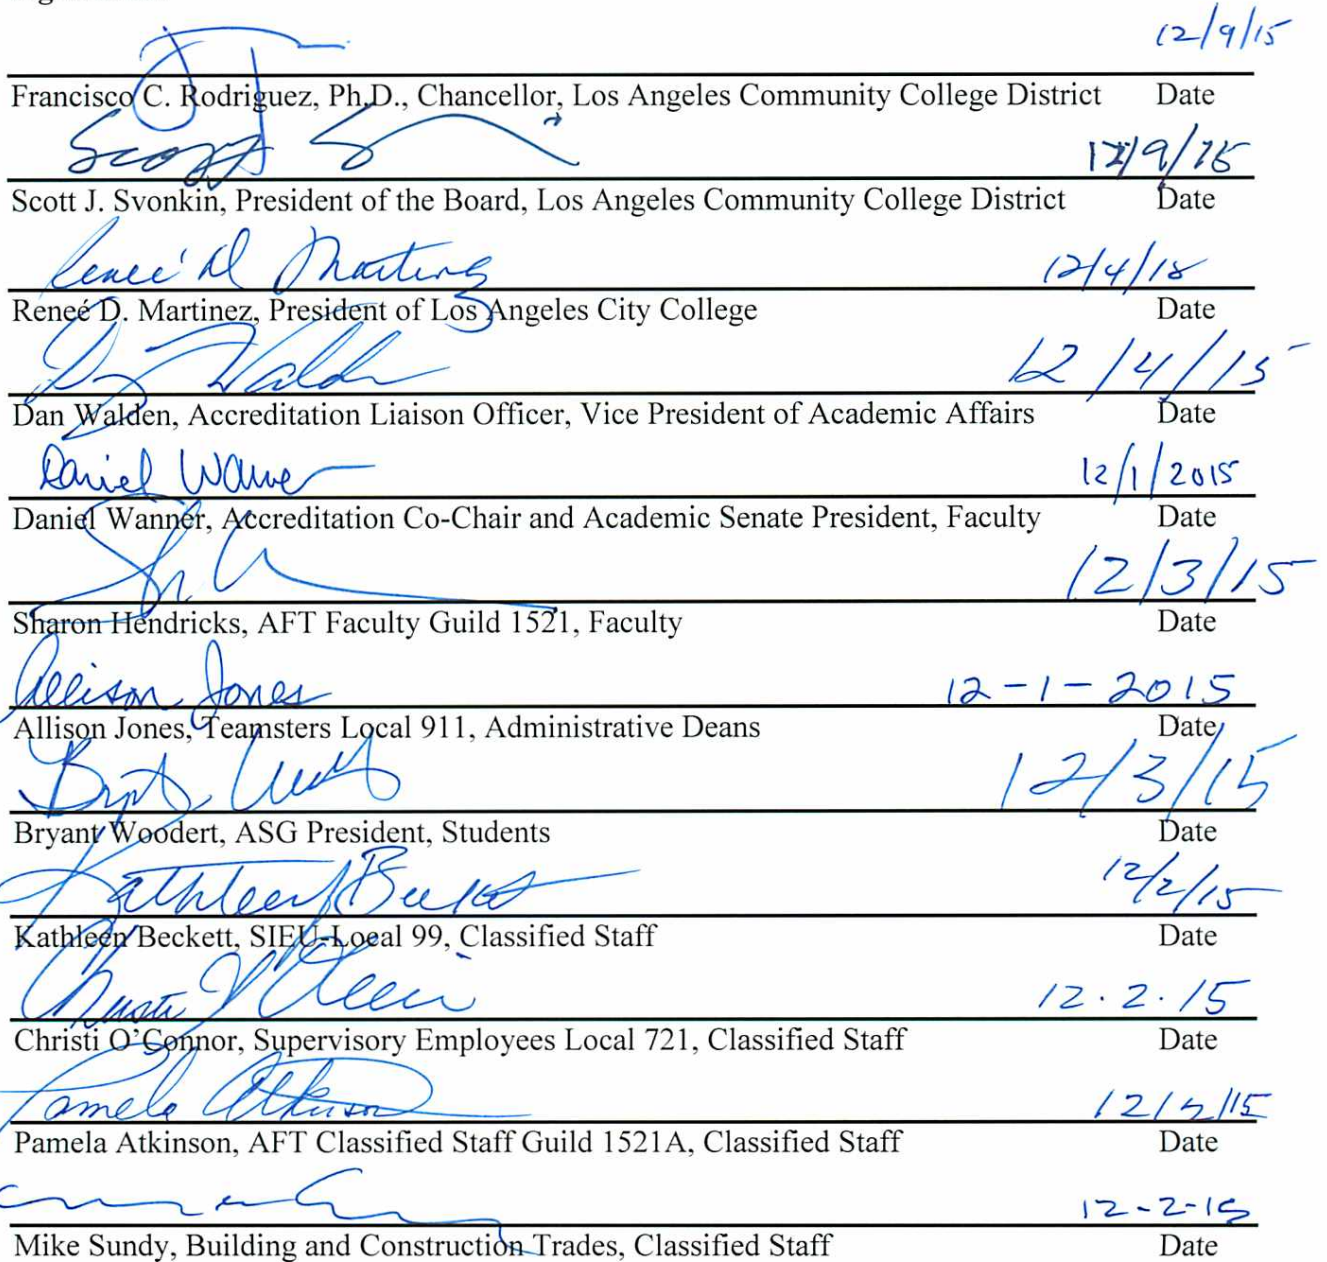 12/9/15
Francisco C. Rodriguez, Ph.D., Chancellor, Los Angeles Community College District Date
Scott S 12/9/15
Scott J. Svonkin, President of the Board, Los Angeles Community College District Date
Reneé D Martinez 12/4/15
Reneé D. Martinez, President of Los Angeles City College Date
D Walden 12/4/15
Dan Walden, Accreditation Liaison Officer, Vice President of Academic Affairs Date
Daniel Wanner 12/1/2015
Daniel Wanner, Accreditation Co-Chair and Academic Senate President, Faculty Date
12/3/15
Sharon Hendricks, AFT Faculty Guild 1521, Faculty Date
Allison Jones 12-1-2015
Allison Jones, Teamsters Local 911, Administrative Deans Date
12/3/15
Bryant Woodert, ASG President, Students Date
Kathleen Beckett 12/2/15
Kathleen Beckett, SIEU-Local 99, Classified Staff Date
12.2.15
Christi O'Connor, Supervisory Employees Local 721, Classified Staff Date
Pamela Atkinson 12/2/15
Pamela Atkinson, AFT Classified Staff Guild 1521A, Classified Staff Date
12-2-15
Mike Sundy, Building and Construction Trades, Classified Staff Date